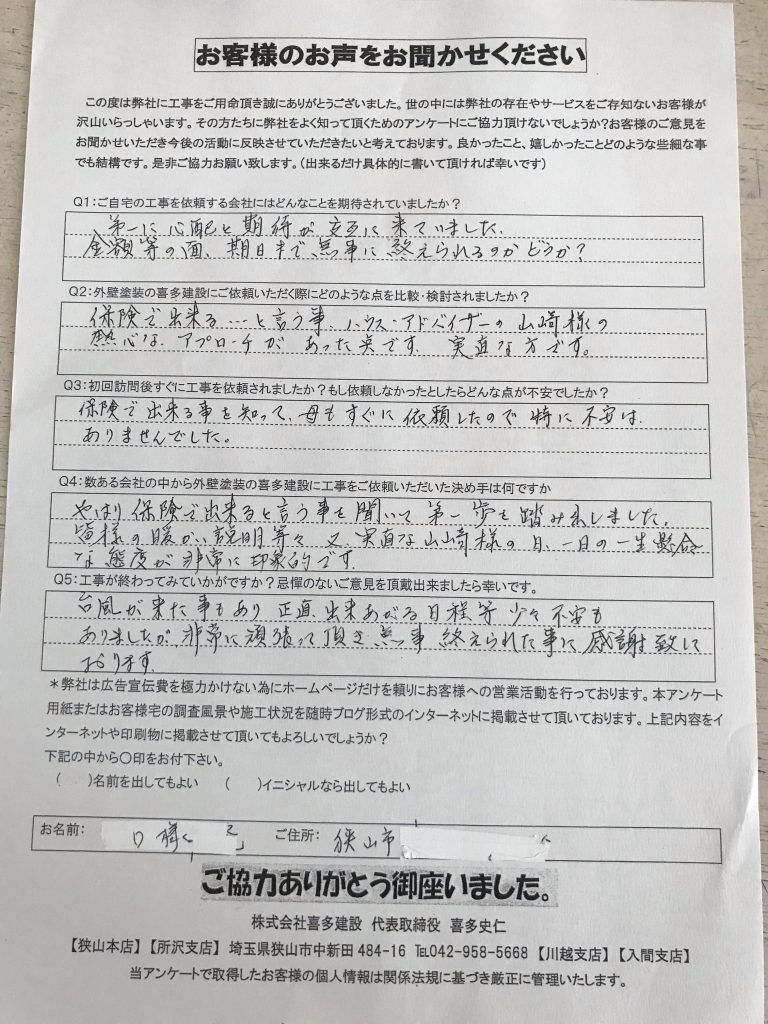 お客様のお声をお聞かせください
この度は弊社に工事をご用命頂き誠にありがとうございました。世の中には弊社の存在やサービスをご存知ないお客様が
沢山いらっしゃいます。その方たちに弊社をよく知って頂くためのアンケートにご協力頂けないでしょうか?お客様のご意見を
お聞かせいただき今後の活動に反映させていただきたいと考えております。良かったこと、嬉しかったことどのような些細な事
でも結構です。是非ご協力お願い致します。(出来るだけ具体的に書いて頂ければ幸いです)
Q1:ご自宅の工事を依頼する会社にはどんなことを期待されていましたか?
第一に心配と期待が交互に来ていました。
金額等の面、期日まで、無事に終えられるのかどうか?
Q2:外壁塗装の喜多建設にご依頼いただく際にどのような点を比較・検討されましたか?
保険で出来る…と言う事、ハウス・アドバイザーの山﨑様の
熱心な、アプローチが、あった点です。実直な方です。
Q3:初回訪問後すぐに工事を依頼されましたか?もし依頼しなかったとしたらどんな点が不安でしたか?
保険で出来る事を知って、母もすぐに依頼したので特に不安は
ありませんでした。
Q4:数ある会社の中から外壁塗装の喜多建設に工事をご依頼いただいた決め手は何ですか
やはり保険で出来ると言う事を聞いて第一歩を踏み出しました。
皆様の暖かい説明等々、又、実直な山﨑様の日、一日の一生懸命
な態度が非常に印象的です。
Q5:工事が終わってみていかがですか?忌憚のないご意見を頂戴出来ましたら幸いです。
台風が来た事もあり正直、出来あがる日程等少々不安も
ありましたが、非常に頑張って頂き無事終えられた事に感謝致して
おります。
*弊社は広告宣伝費を極力かけない為にホームページだけを頼りにお客様への営業活動を行っております。本アンケート
用紙またはお客様宅の調査風景や施工状況を随時ブログ形式のインターネットに掲載させて頂いております。上記内容をイ
ンターネットや印刷物に掲載させて頂いてもよろしいでしょうか?
下記の中から〇印をお付下さい。
( )名前を出してもよい ( )イニシャルなら出してもよい
お名前: 様 ご住所: 狭山市
ご協力ありがとう御座いました。
株式会社喜多建設 代表取締役 喜多史仁
【狭山本店】【所沢支店】 埼玉県狭山市中新田484-16 ℡042-958-5668 【川越支店】【入間支店】
当アンケートで取得したお客様の個人情報は関係法規に基づき厳正に管理いたします。